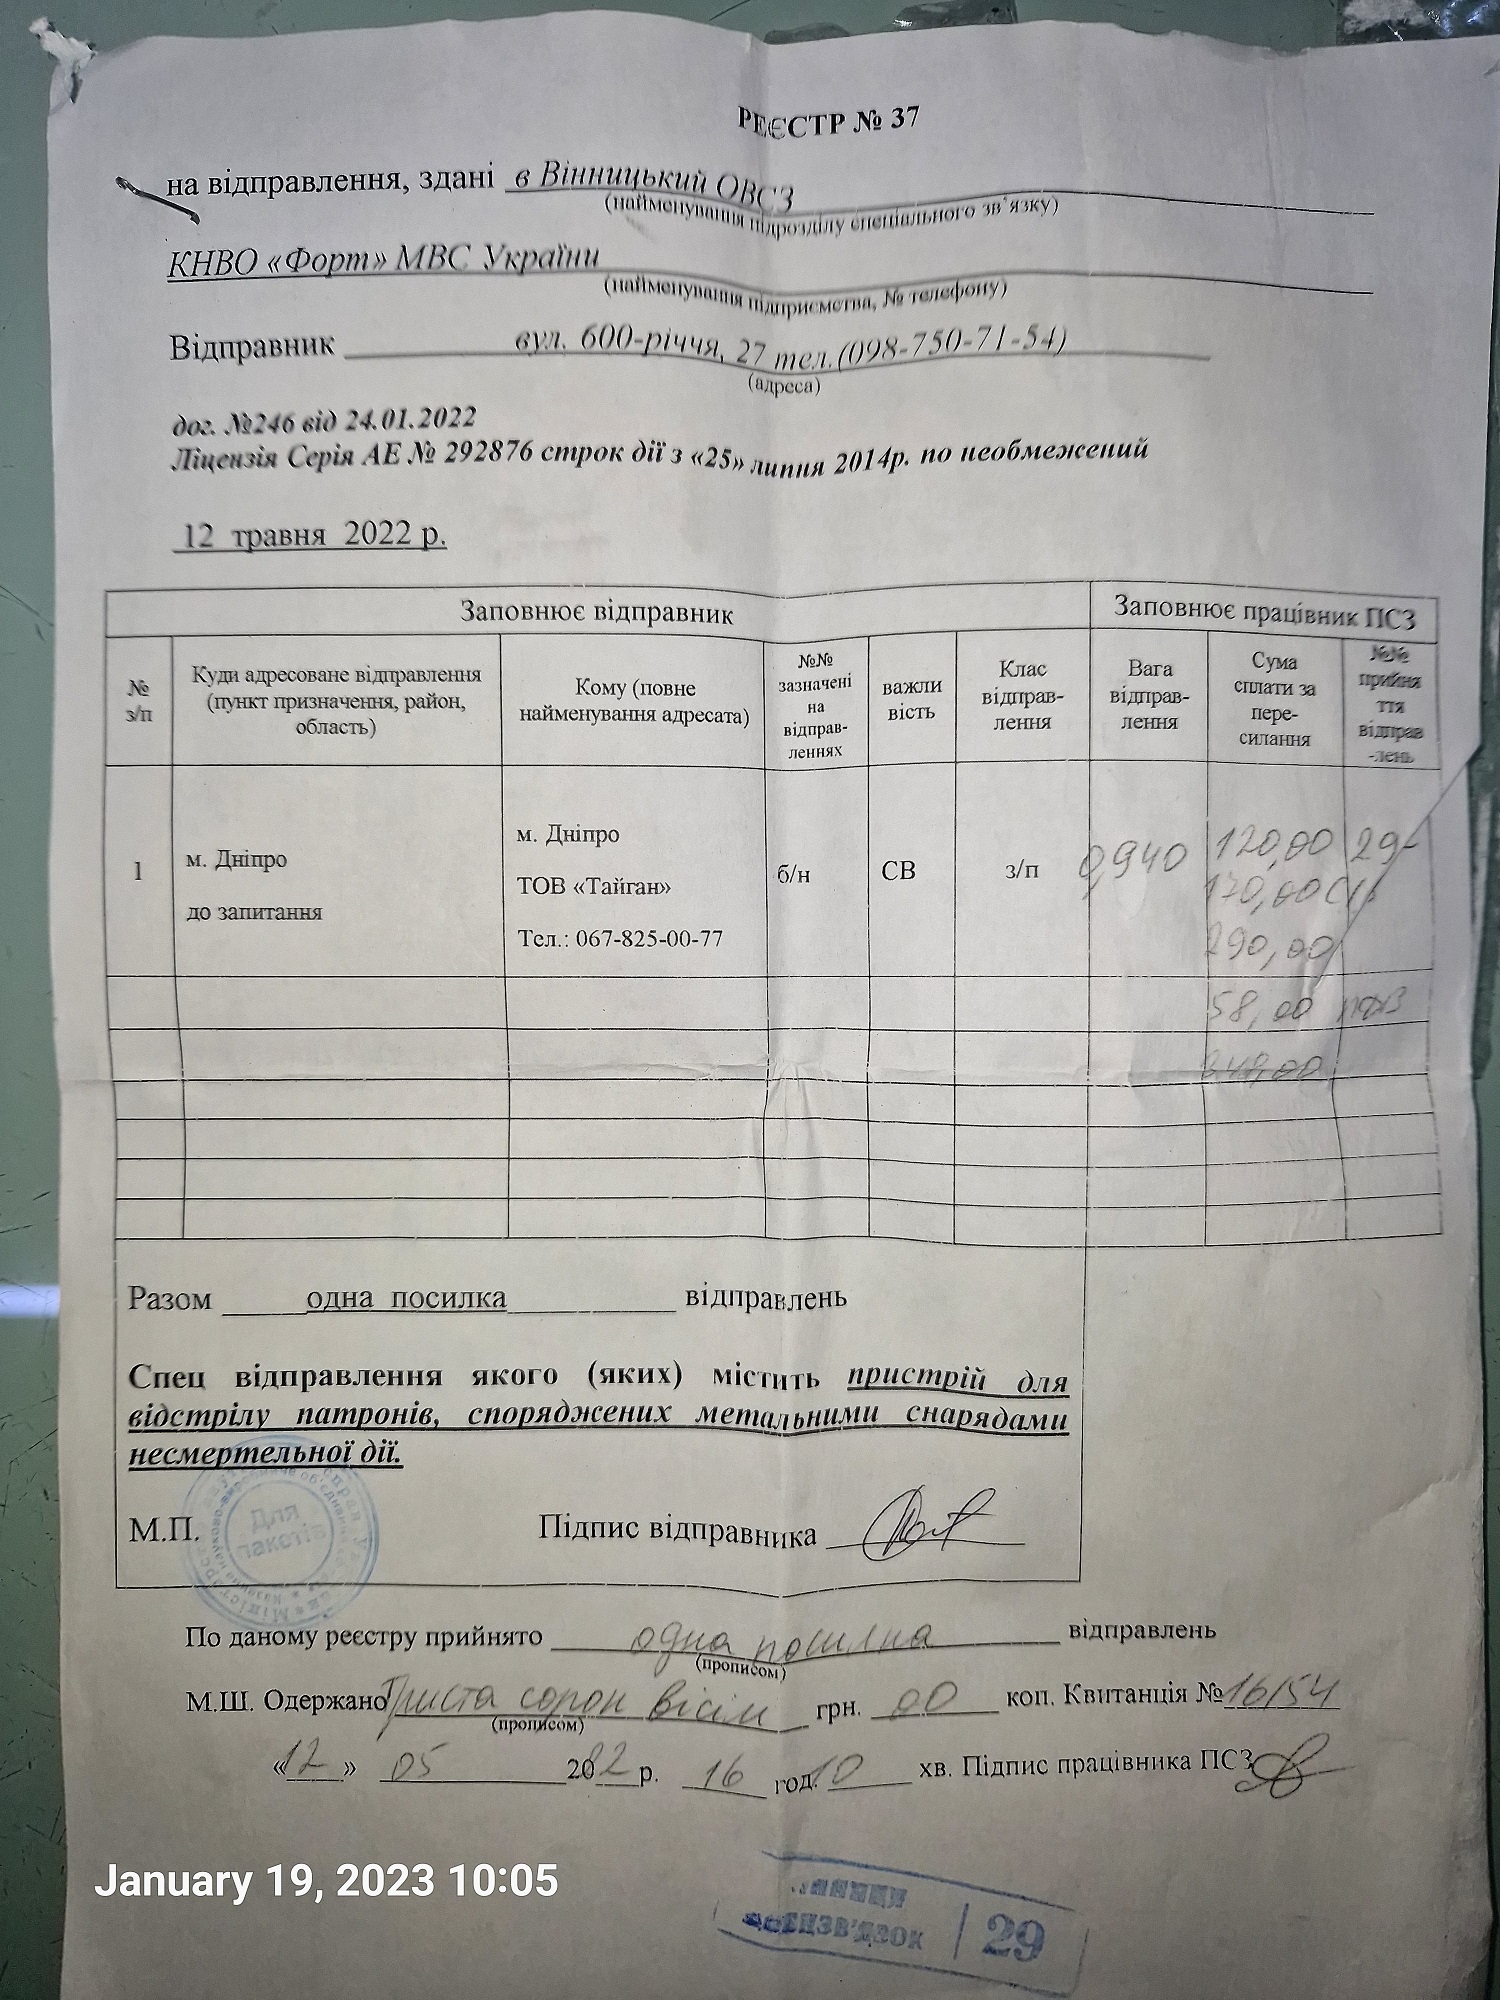 РЕЄСТР № 37
на відправлення, здані в Вінницький ОВСЗ
(найменування підрозділу спеціального зв'язку)
КНВО «Форт» МВС України
(найменування підприємства, № телефону)
Відправник вул. 600-річчя, 27 тел.(098-750-71-54)
(адреса)
дог. №246 від 24.01.2022
Ліцензія Серія АЕ № 292876 строк дії з «25» липня 2014р. по необмежений
12 травня 2022 р.
Заповнює відправник
Заповнює працівник ПСЗ
№ з/п
Куди адресоване відправлення (пункт призначення, район, область)
Кому (повне найменування адресата)
№№ зазначені на відправ-леннях
важли вість
Клас відправ-лення
Вага відправ-лення
Сума сплати за пере-силання
№№ прийня ття відправ -лень
1
м. Дніпро
до запитання
м. Дніпро
ТОВ «Тайган»
Тел.: 067-825-00-77
б/н
СВ
з/п
0,940
120,00
29-
170,00
290,00
58,00 пдв
348,00
Разом одна посилка відправлень
Спец відправлення якого (яких) містить пристрій для
відстрілу патронів, споряджених метальними снарядами
несмертельної дії.
Для
пакетів
М.П. Підпис відправника
По даному реєстру прийнято одна посилка відправлень
(прописом)
М.Ш. Одержано Триста сорок вісім грн. 00 коп. Квитанція № 16/54
(прописом)
«12» 05 2022 р. 16 год. 10 хв. Підпис працівника ПСЗ
January 19, 2023 10:05
29